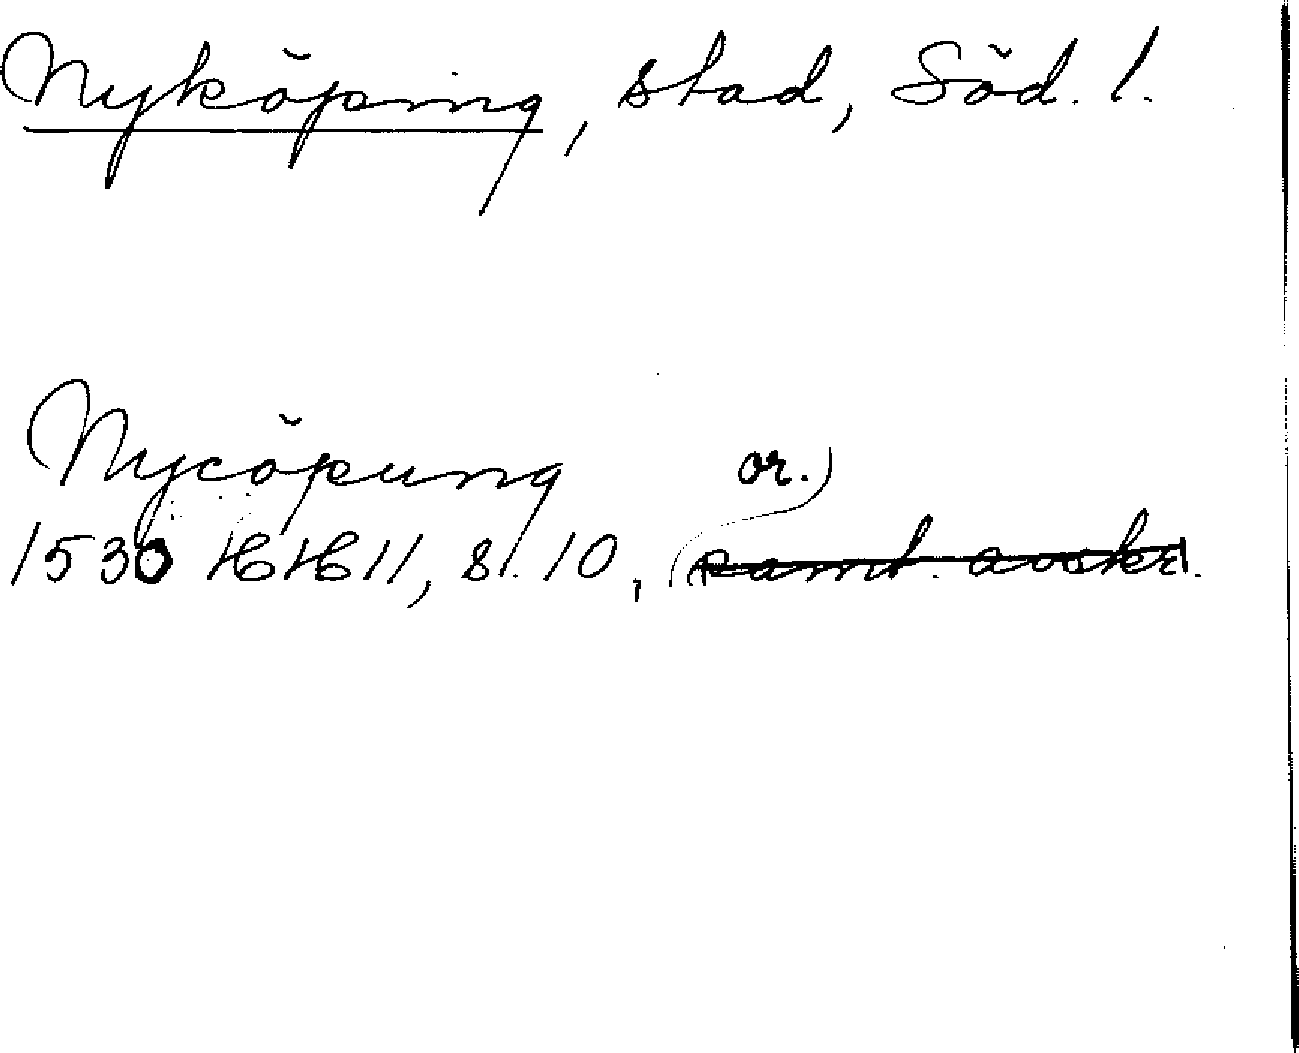 Nyköping, stad, Söd. l.
Nycöpung or.)
1530 HH 11, s. 10, samt. avskr.